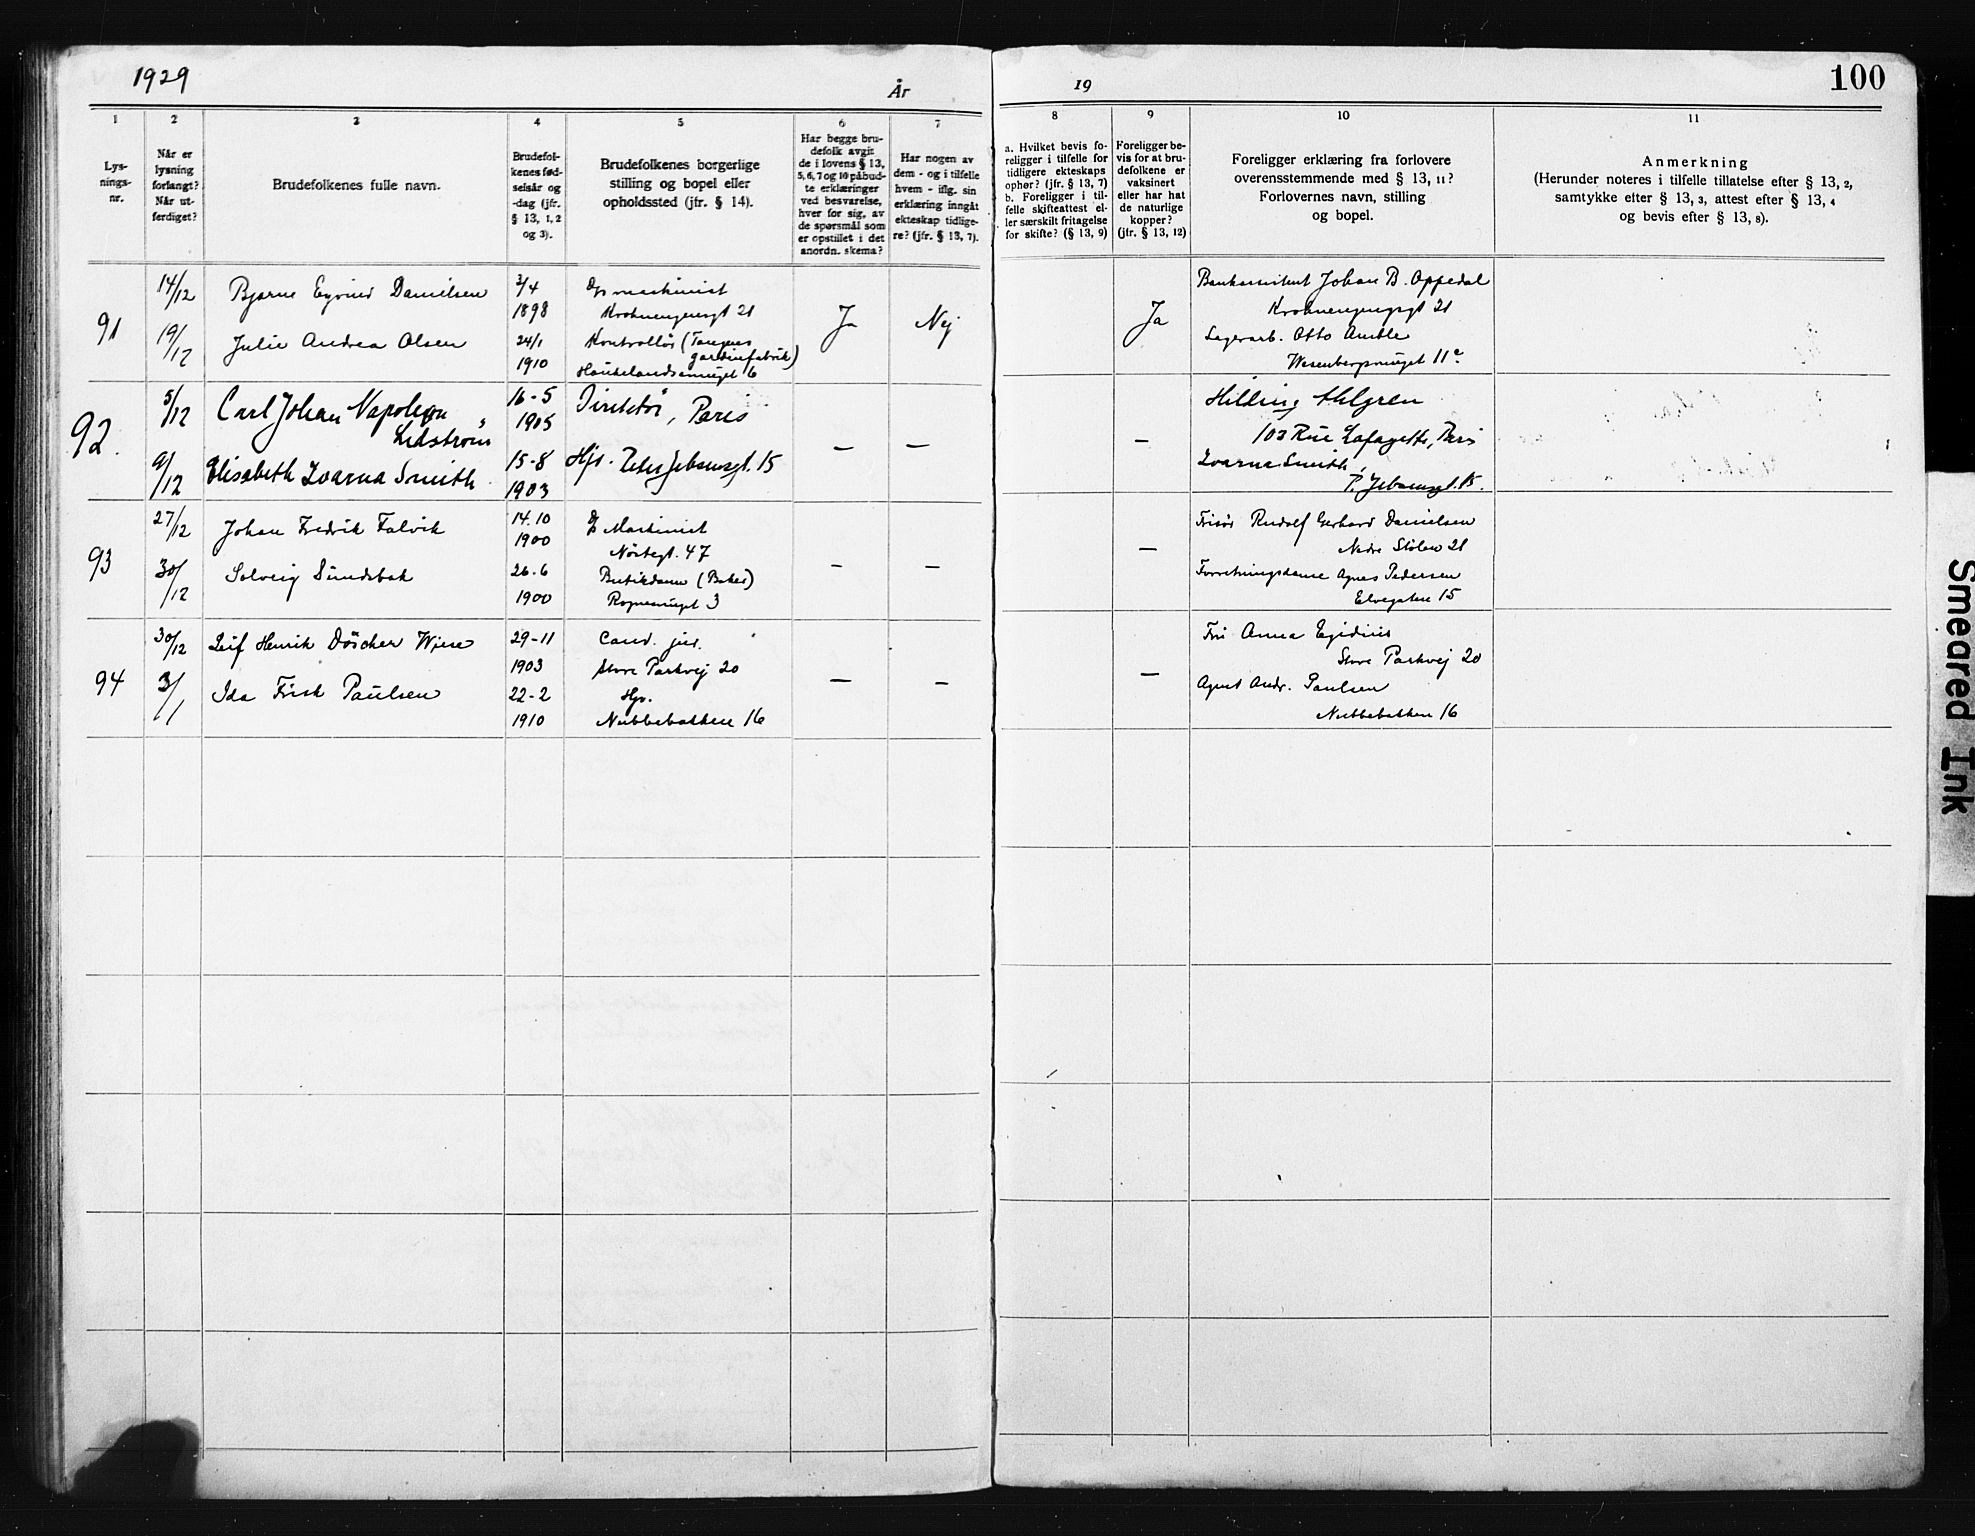 1929
År
19
100
1
2
3
4
5
6
7
8
9
10
11
Lys-
nings-
nr.
Når er
lysning
forlangt?
Når ut-
ferdiget?
Brudefolkenes fulle navn.
Brudefol-
kenes fød-
selsår og
-dag (jfr.
§ 13, 1, 2
og 3).
Brudefolkenes borgerlige
stilling og bopel eller
opholdssted (jfr. § 14).
Har begge bru-
defolk avgit
de i lovens § 13,
5, 6, 7 og 10 påbud-
te erklæringer
ved besvarelse,
hver for sig, av
de spørsmål som
er opstillet i det
anordn. skema?
Har nogen av
dem - og i tilfelle
hvem - iflg. sin
erklæring inngåt
ekteskap tidlige-
re? (jfr. § 13, 7).
a. Hvilket bevis fo-
religger i tilfelle for
tidligere ekteskaps
ophør? (jfr. § 13, 7)
b. Foreligger i til-
felle skifteattest el-
ler særskilt fritagelse
for skifte? (§ 13, 9)
Foreligger be-
vis for at bru-
defolkene er
vaksinert
eller har hat
de naturlige
kopper?
(jfr. § 13, 12)
Foreligger erklæring fra forlovere
overensstemmende med § 13, 11?
Forlovernes navn, stilling
og bopel.
Anmerkning
(Herunder noteres i tilfelle tillatelse efter § 13, 2,
samtykke efter § 13, 3, attest efter § 13, 4
og bevis efter § 13, 8).
91
14/12
19/12
Bjarne Eyvind Danielsen
Julie Andrea Olsen
3/4
1898
24/1
1910
maskinist
Krohnengengt 21
Kontrollör (Tangens
gardinfabrik)
Haukelandsmuget 6
Ja
Nej
Ja
Bankassistent Johan B. Oppedal
Krohnengengt 21
Lagerarb. Otto Amble
11
92.
5/12
9/12
Carl Johan Napoleon
Lidström
Elisabeth Ivarna Smith
16-5
1905
15-8
1903
Direktör, Paris
Hjs. Peter Jebsensgt. 15
—
—
—
Hilding Ahlgren
103 Rue Lafayette, Paris
Ivarna Smith,
P. Jebsensgt. 15.
93
27/12
30/12
Johan Fredrik Falvik
Solveig Sundsbak
14.10
1900
26.6
1900
Maskinist
Nöstegt. 47
Butikdame (Baker)
3
—
—
—
Frisör Rudolf Gerhard Danielsen
Nedre Stölen 21
Forretningsdame Agnes Pedersen
Elvegaten 15
94
30/12
3/1
Leif Henrik Döscher Wiese
Ida Frisk Paulsen
29-11
1903
22-2
1910
Cand. jur.
Store Parkvej 20
Hjs.
Nubbebakken 16
—
—
—
Fru Anna Egidius
Store Parkvej 20
Agent Andr. Paulsen
Nubbebakken 16
Smeared Ink